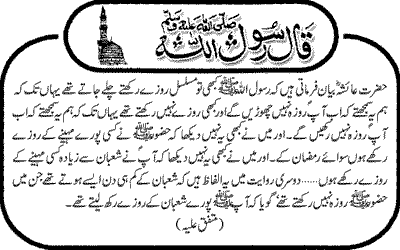 قال رسول اللہ صلی اللہ علیہ وسلم
حضرت عائشہؓ بیان فرماتی ہیں کہ رسول اللہ ﷺ کبھی تو مسلسل روزے رکھتے چلے جاتے تھے یہاں تک کہ
ہم یہ سمجھتے کہ اب آپؐ روزہ نہیں چھوڑیں گے اور کبھی روزے نہیں رکھتے تھے یہاں تک کہ ہم یہ سمجھتے کہ اب
آپؐ روزہ نہیں رکھیں گے۔ اور میں نے کبھی یہ نہیں دیکھا کہ حضور ﷺ نے کسی پورے مہینے کے روزے
رکھے ہوں سوائے رمضان کے۔ اور میں نے کبھی یہ نہیں دیکھا کہ آپؐ نے شعبان سے زیادہ کسی مہینے کے
روزے رکھے ہوں...... دوسری روایت میں یہ الفاظ ہیں کہ شعبان کے کم ہی دن ایسے ہوتے تھے جن میں
حضور ﷺ روزہ نہیں رکھتے تھے، گویا کہ آپؐ پورے شعبان کے روزے رکھ لیتے تھے۔
(متفق علیہ)